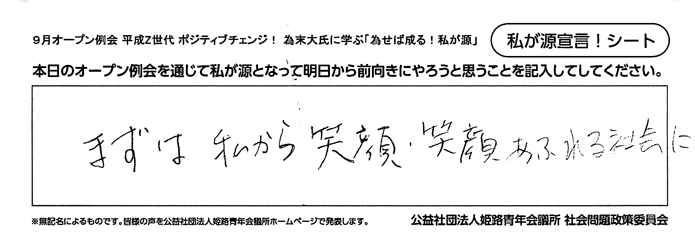 9月オープン例会 平成Z世代 ポジティブチェンジ！ 為末大氏に学ぶ「為せば成る！私が源」
私が源宣言！シート
本日のオープン例会を通じて私が源となって明日から前向きにやろうと思うことを記入してしてください。
まずは 私から 笑顔・笑顔あふれる社会に
※無記名によるものです。皆様の声を公益社団法人姫路青年会議所ホームページで発表します。
公益社団法人姫路青年会議所 社会問題政策委員会